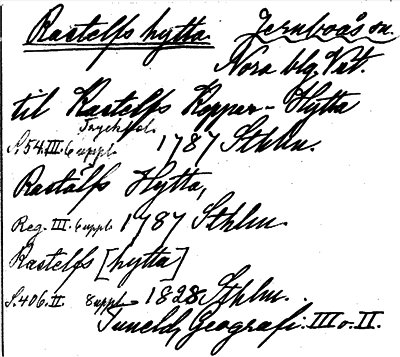 Rastelfs hytta. Jernboås sn.
Nora blg. Vst.
til Rastelfs Kopper-Hytta
S. 54. III. 6 uppl. 1787 Sthlm.
Rastälfs Hytta,
Reg. III. 6 uppl. 1787 Sthlm.
Rastelfs [hytta]
S. 406. II. 8 uppl. 1828 Sthlm.
Tuneld, Geografi. III o. II.